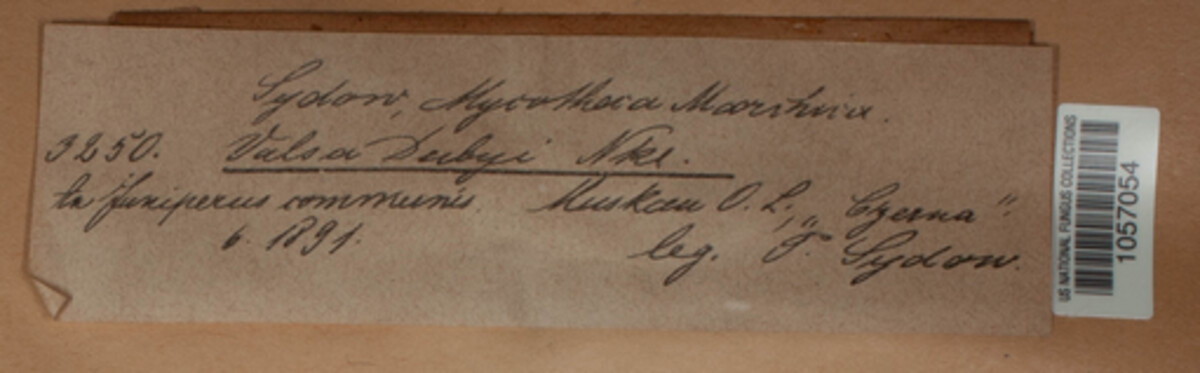 Sydow, Mycotheca Marchica.
3250. Valsa Dubyi Nke.
In Juniperus communis. Muskau O. L., „Czerna“.
6. 1891. leg. P. Sydow.
US NATIONAL FUNGUS COLLECTIONS
1057054